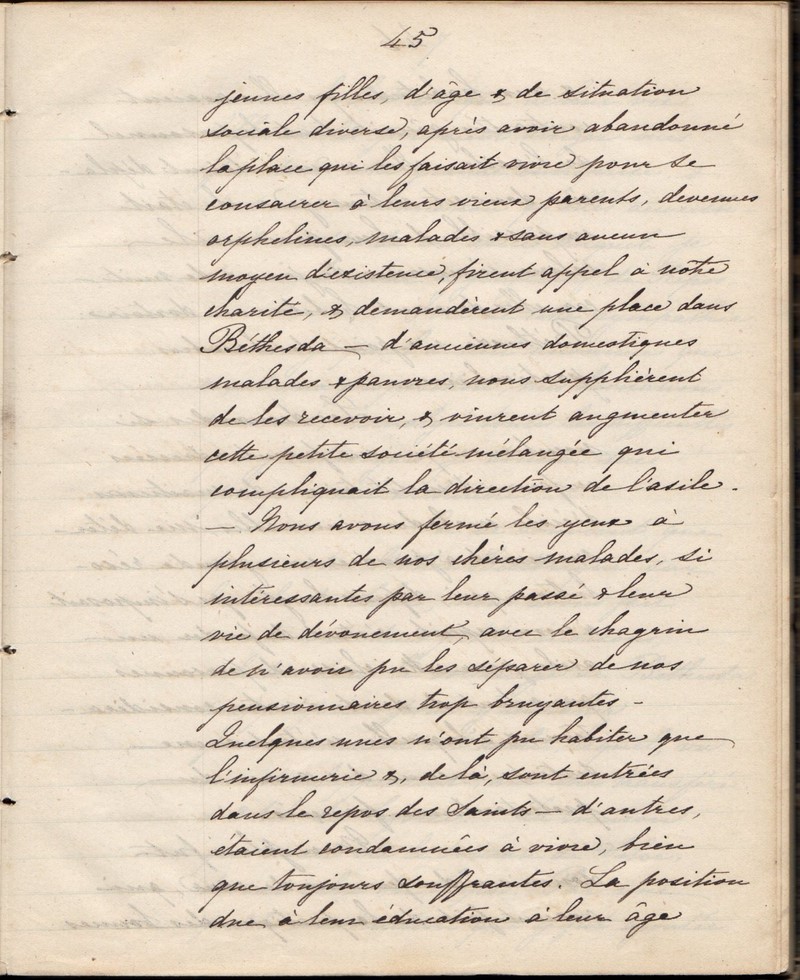 45
jeunes filles, d'âge & de situation
sociale diverse, après avoir abandonné
la place qui les faisait vivre pour se
consacrer à leurs vieux parents, devenues
orphelines, malades & sans aucun
moyen d'existence, firent appel à notre
charité, & demandèrent une place dans
Béthesda — d'anciennes domestiques
malades & pauvres, nous supplièrent
de les recevoir, & vinrent augmenter
cette petite société mélangée qui
compliquait la direction de l'asile.
— Nous avons fermé les yeux à
plusieurs de nos chères malades, si
intéressantes par leur passé & leur
vie de dévouement, avec le chagrin
de n'avoir pu les séparer de nos
pensionnaires trop bruyantes —
Quelques unes n'ont pu habiter que
l'infirmerie &, de là, sont entrées
dans le repos des Saints — d'autres,
étaient condamnées à vivre, bien
que toujours souffrantes. La position
due à leur éducation à leur âge